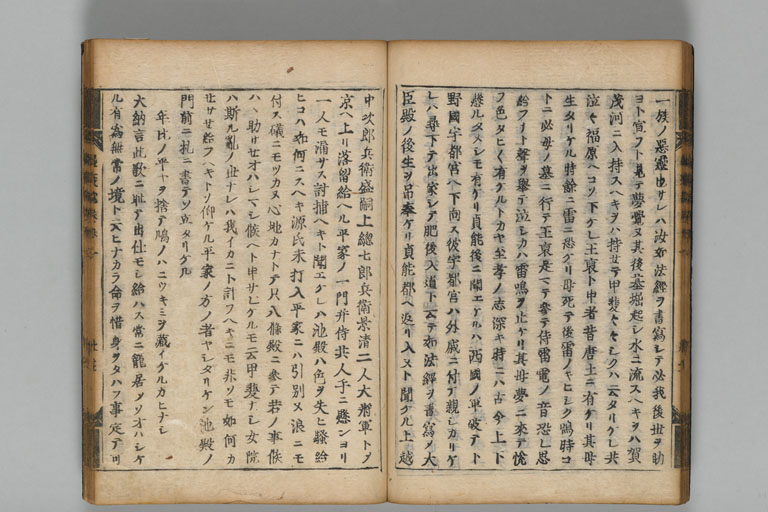 一族ノ惡靈也サレハ汝如法經ヲ書寫シテ必我後世ヲ助
ヨト宣フト見テ夢覺ヌ其後墓堀起シ水ニ流スヘキヲハ賀
茂河ニ入持スヘキヲハ持セテ甲斐々々シクハ云タリケレ共
泣々福原ヘコソ下ケレ王裒ト申者昔唐土ニ有ケリ其母
生タリケル時餘ニ雷ニ恐ケリ母死テ後雷ノヲヒヽシク鳴時コ
トニ必母ノ墓ニ行テ王裒是ニテ參テ侍雷電ノ音恐シ思
給フナト聲ヲ舉テ泣シカハ雷鳴ヲ止ケリ其母夢ニ來テ悅
フ色タヒヽ有ケルトカヤ至孝ノ志深キ時ニハ古今上下
懸ルタメシモ有ケリ貞能後ニ聞エケルハ西國ノ軍破テト
野國宇都宮ヘ下向ス彼宇都宮ハ外戚ニ付テ親シカリケ
レハ尋下テ出家シテ肥後入道ト云テ如法經ヲ書寫メ大
臣殿ノ後生ヲ吊奉ケリ貞能都ヘ返リ入ヌト聞ケル上越
中次郎兵衛盛嗣上總七郎兵衛景清二人大將軍トメ
京ヘ上リ落留給ヘル平家ノ一門并侍共人手ニ懸ンヨリ
一人モ漏サス討捕ヘキト聞エケレハ池殿ハ色ヲ失ヒ騷給
ヒコハ如何ニスヘキ源氏未打入平家ニハ引別ヌ浪ニモ
付ス礒ニモツカヌ心地カナトテ只八條殿ニ參テ若ノ事候
ハヽ助サセ給ハシマシ候ヘト申サレケルモ云甲斐ナシ女院
ハ斯ル亂ノ世ナレハ我イカニト計フヘキニモ非ソモ如何カ
セサセ給フヘキトソ仰ケル平家ノ方ノ者ヤシタリケン池殿ノ
門前ニ札ニ書テソ立タリケル
年比ノ平ヤヲ捨テ鳩ノハニウキミヲ藏イケルカヒナシ
大納言此歌ニ耻テ出仕モシ給ハス常ニ籠居メソオハシケ
ル有為無常ノ境ト云ヒナカラ命ヲ惜身ヲタハフ事定テ可